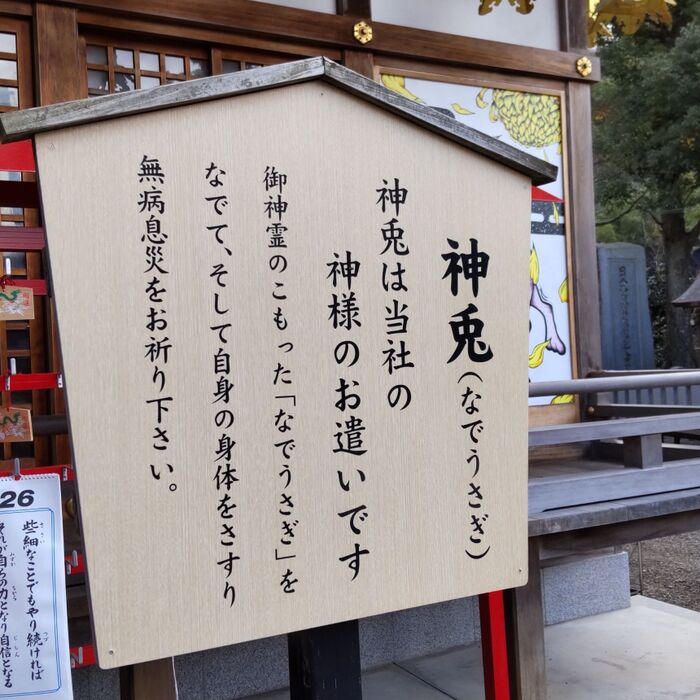 神兎(なでうさぎ)
神兎は当社の
神様のお遣いです
御神霊のこもった「なでうさぎ」を
なでて、そして自身の身体をさすり
無病息災をお祈り下さい。
26
些細なことでもやり続ければ
それが自らの力となり自信となる